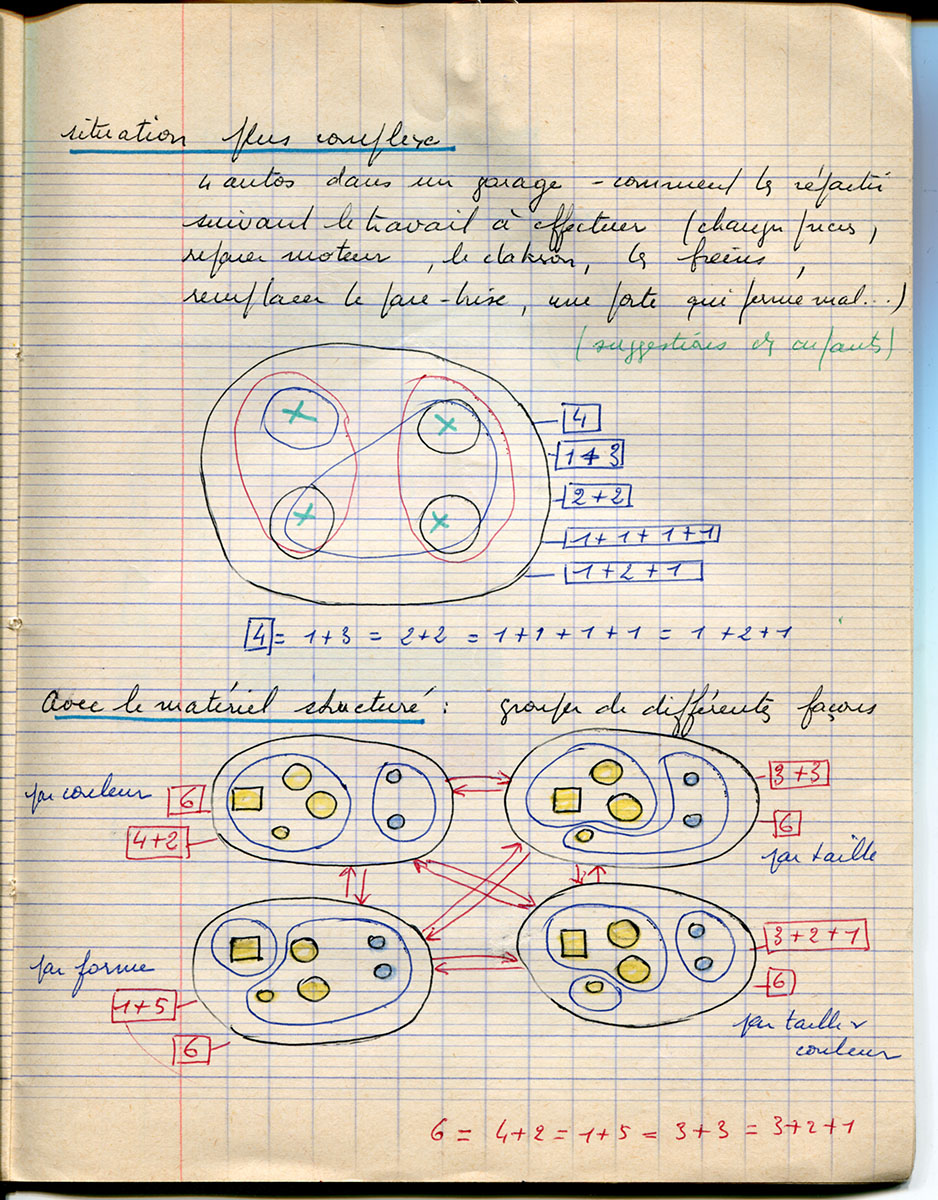 situation plus complexe
4 autos dans un garage - comment les répartir
suivant le travail à effectuer (changer pneus,
réparer moteur, le clakson, les freins,
remplacer le pare-brise, une porte qui ferme mal...)
(suggestions des enfants)
4
1+3
2+2
1+1+1+1
1+2+1
4 = 1+3 = 2+2 = 1+1+1+1 = 1+2+1
Avec le matériel structuré : grouper de différentes façons
par couleur
6
4+2
3+3
6
par taille
par forme
1+5
6
3+2+1
6
par taille &
couleur
6 = 4+2 = 1+5 = 3+3 = 3+2+1